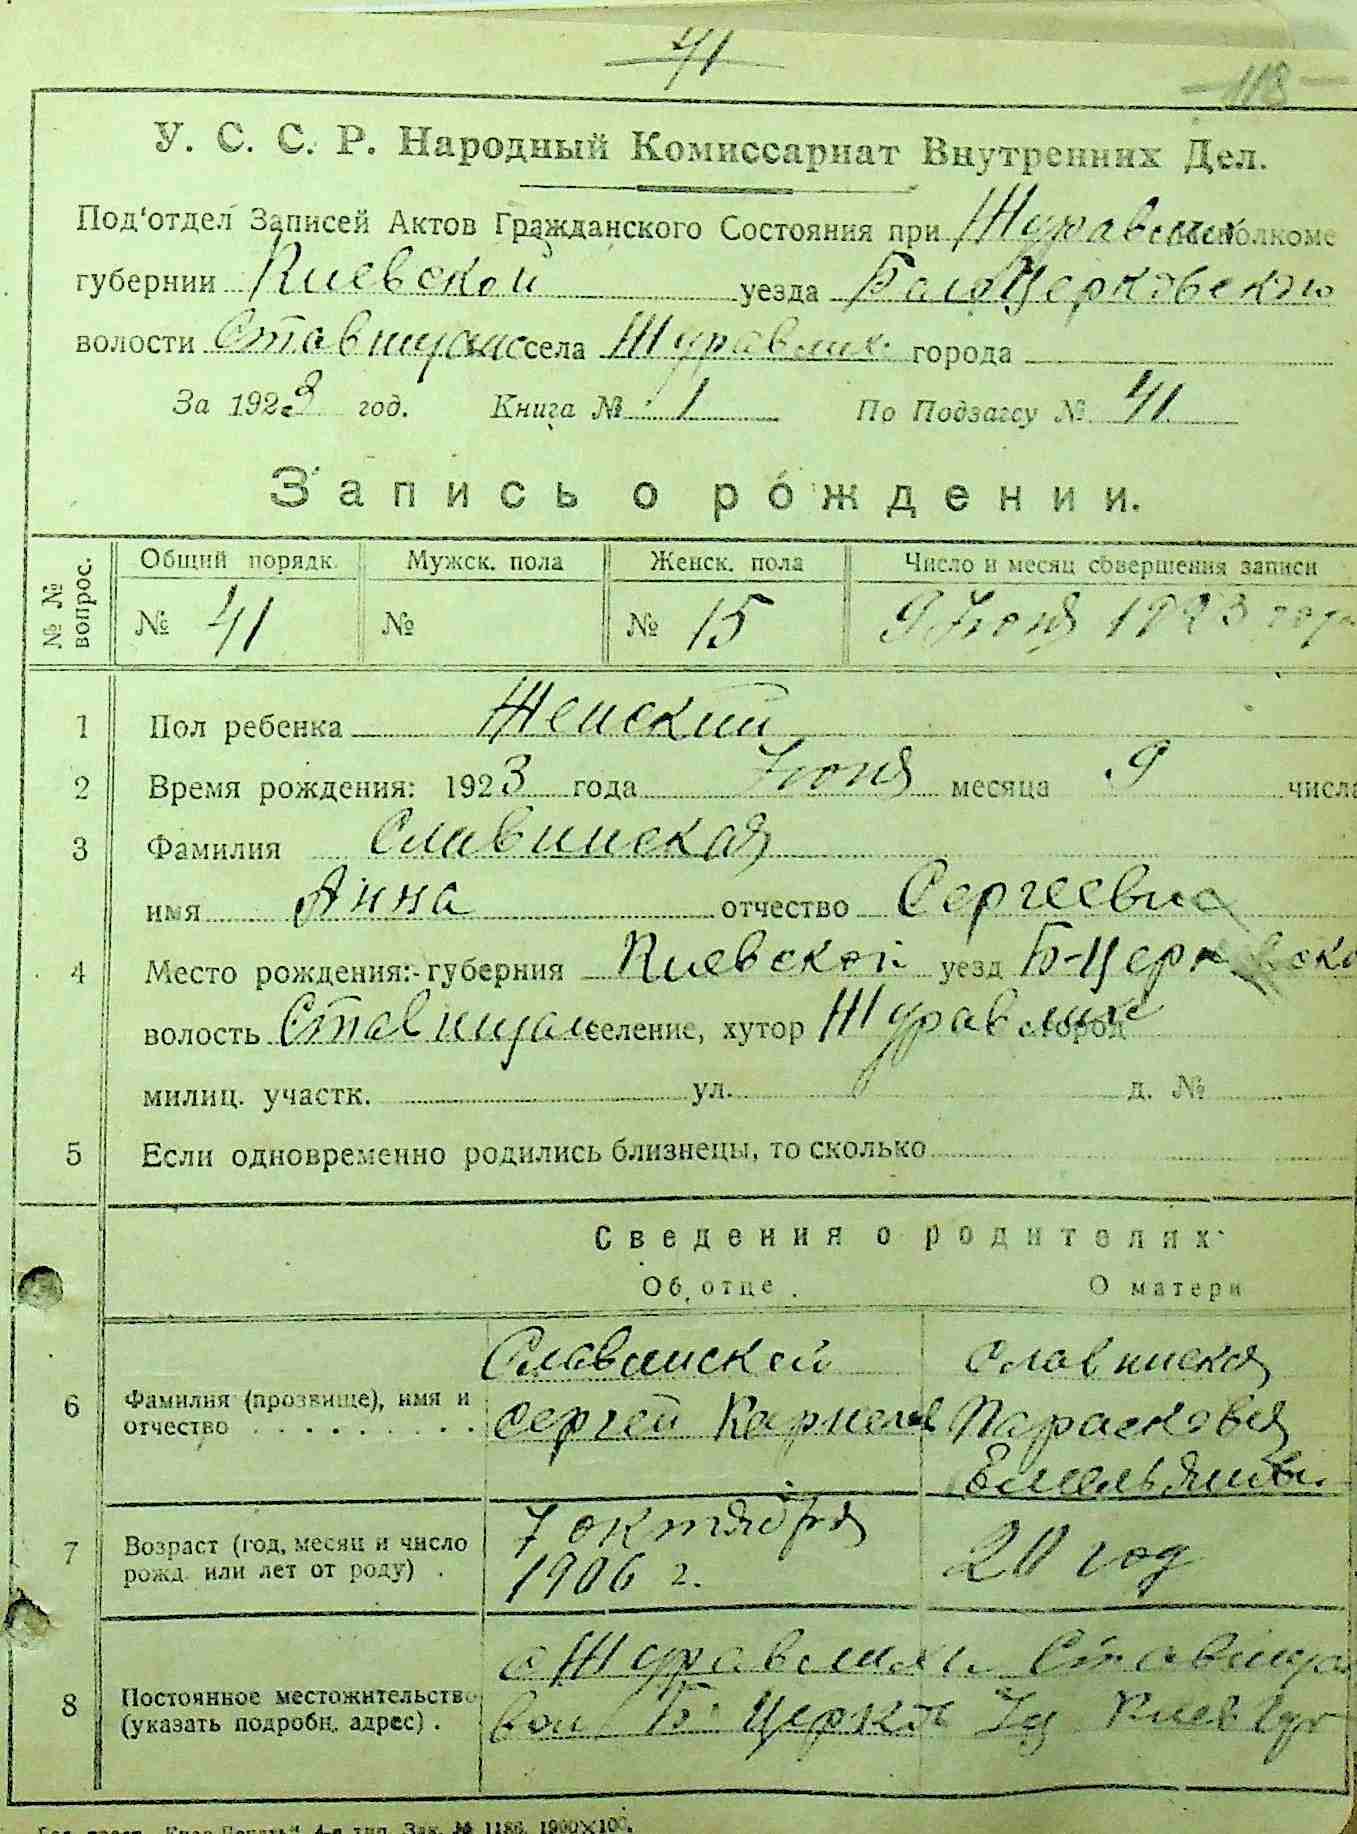 41
118
У. С. С. Р. Народный Комиссариат Внутренних Дел.
Под'отдел Записей Актов Гражданского Состояния при Журавлих исполкоме
губернии Киевской уезда БелоЦерковского
волости Ставищанс села Журавлихе города
За 1923 год. Книга № 1 По Подзагсу № 41
Запись о рождении.
№ № вопрос. Общий порядк. Мужск. пола Женск. пола Число и месяц совершения записи
№ 41 № № 15 9 Июня 1923 года
1 Пол ребенка Женский
2 Время рождения: 1923 года Июня месяца 9 числа
3 Фамилия Славинская
имя Анна отчество Сергеевна
4 Место рождения:-губерния Киевской уезд Б-Церковско
волость Ставищан селение, хутор Журавлихе город
милиц. участк. ул. д. №
5 Если одновременно родились близнецы, то сколько
Сведения о родителях
Об отце. О матери
Славинской Славинская
6 Фамилия (прозвище), имя и отчество Сергей Карнеев Парасковья
Емельянов.
7 Возраст (год, месяц и число рожд. или лет от роду) . 7 октября 1906 г. 20 год
8 Постоянное местожительство (указать подробн. адрес) . с Журавлихи Ставища
вол Б. Церков Киев губ
4-я тип. Зак. № 1186. 1900×100.